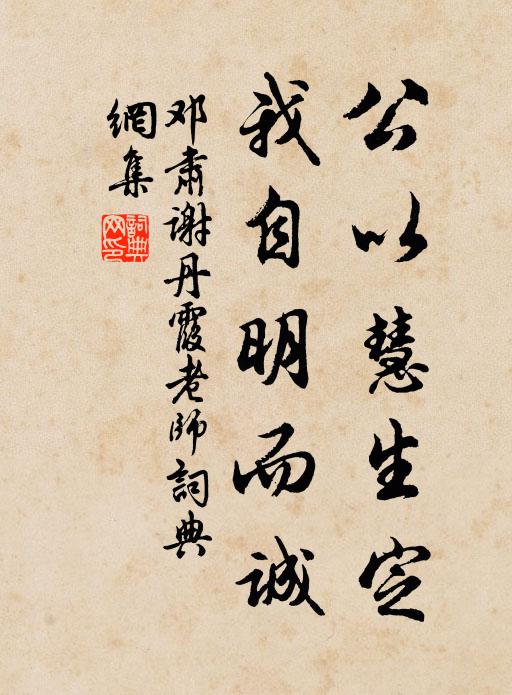 公以慧生定
我自明而誠
邓肅谢丹霞老师詞典
網集
詞典
网印